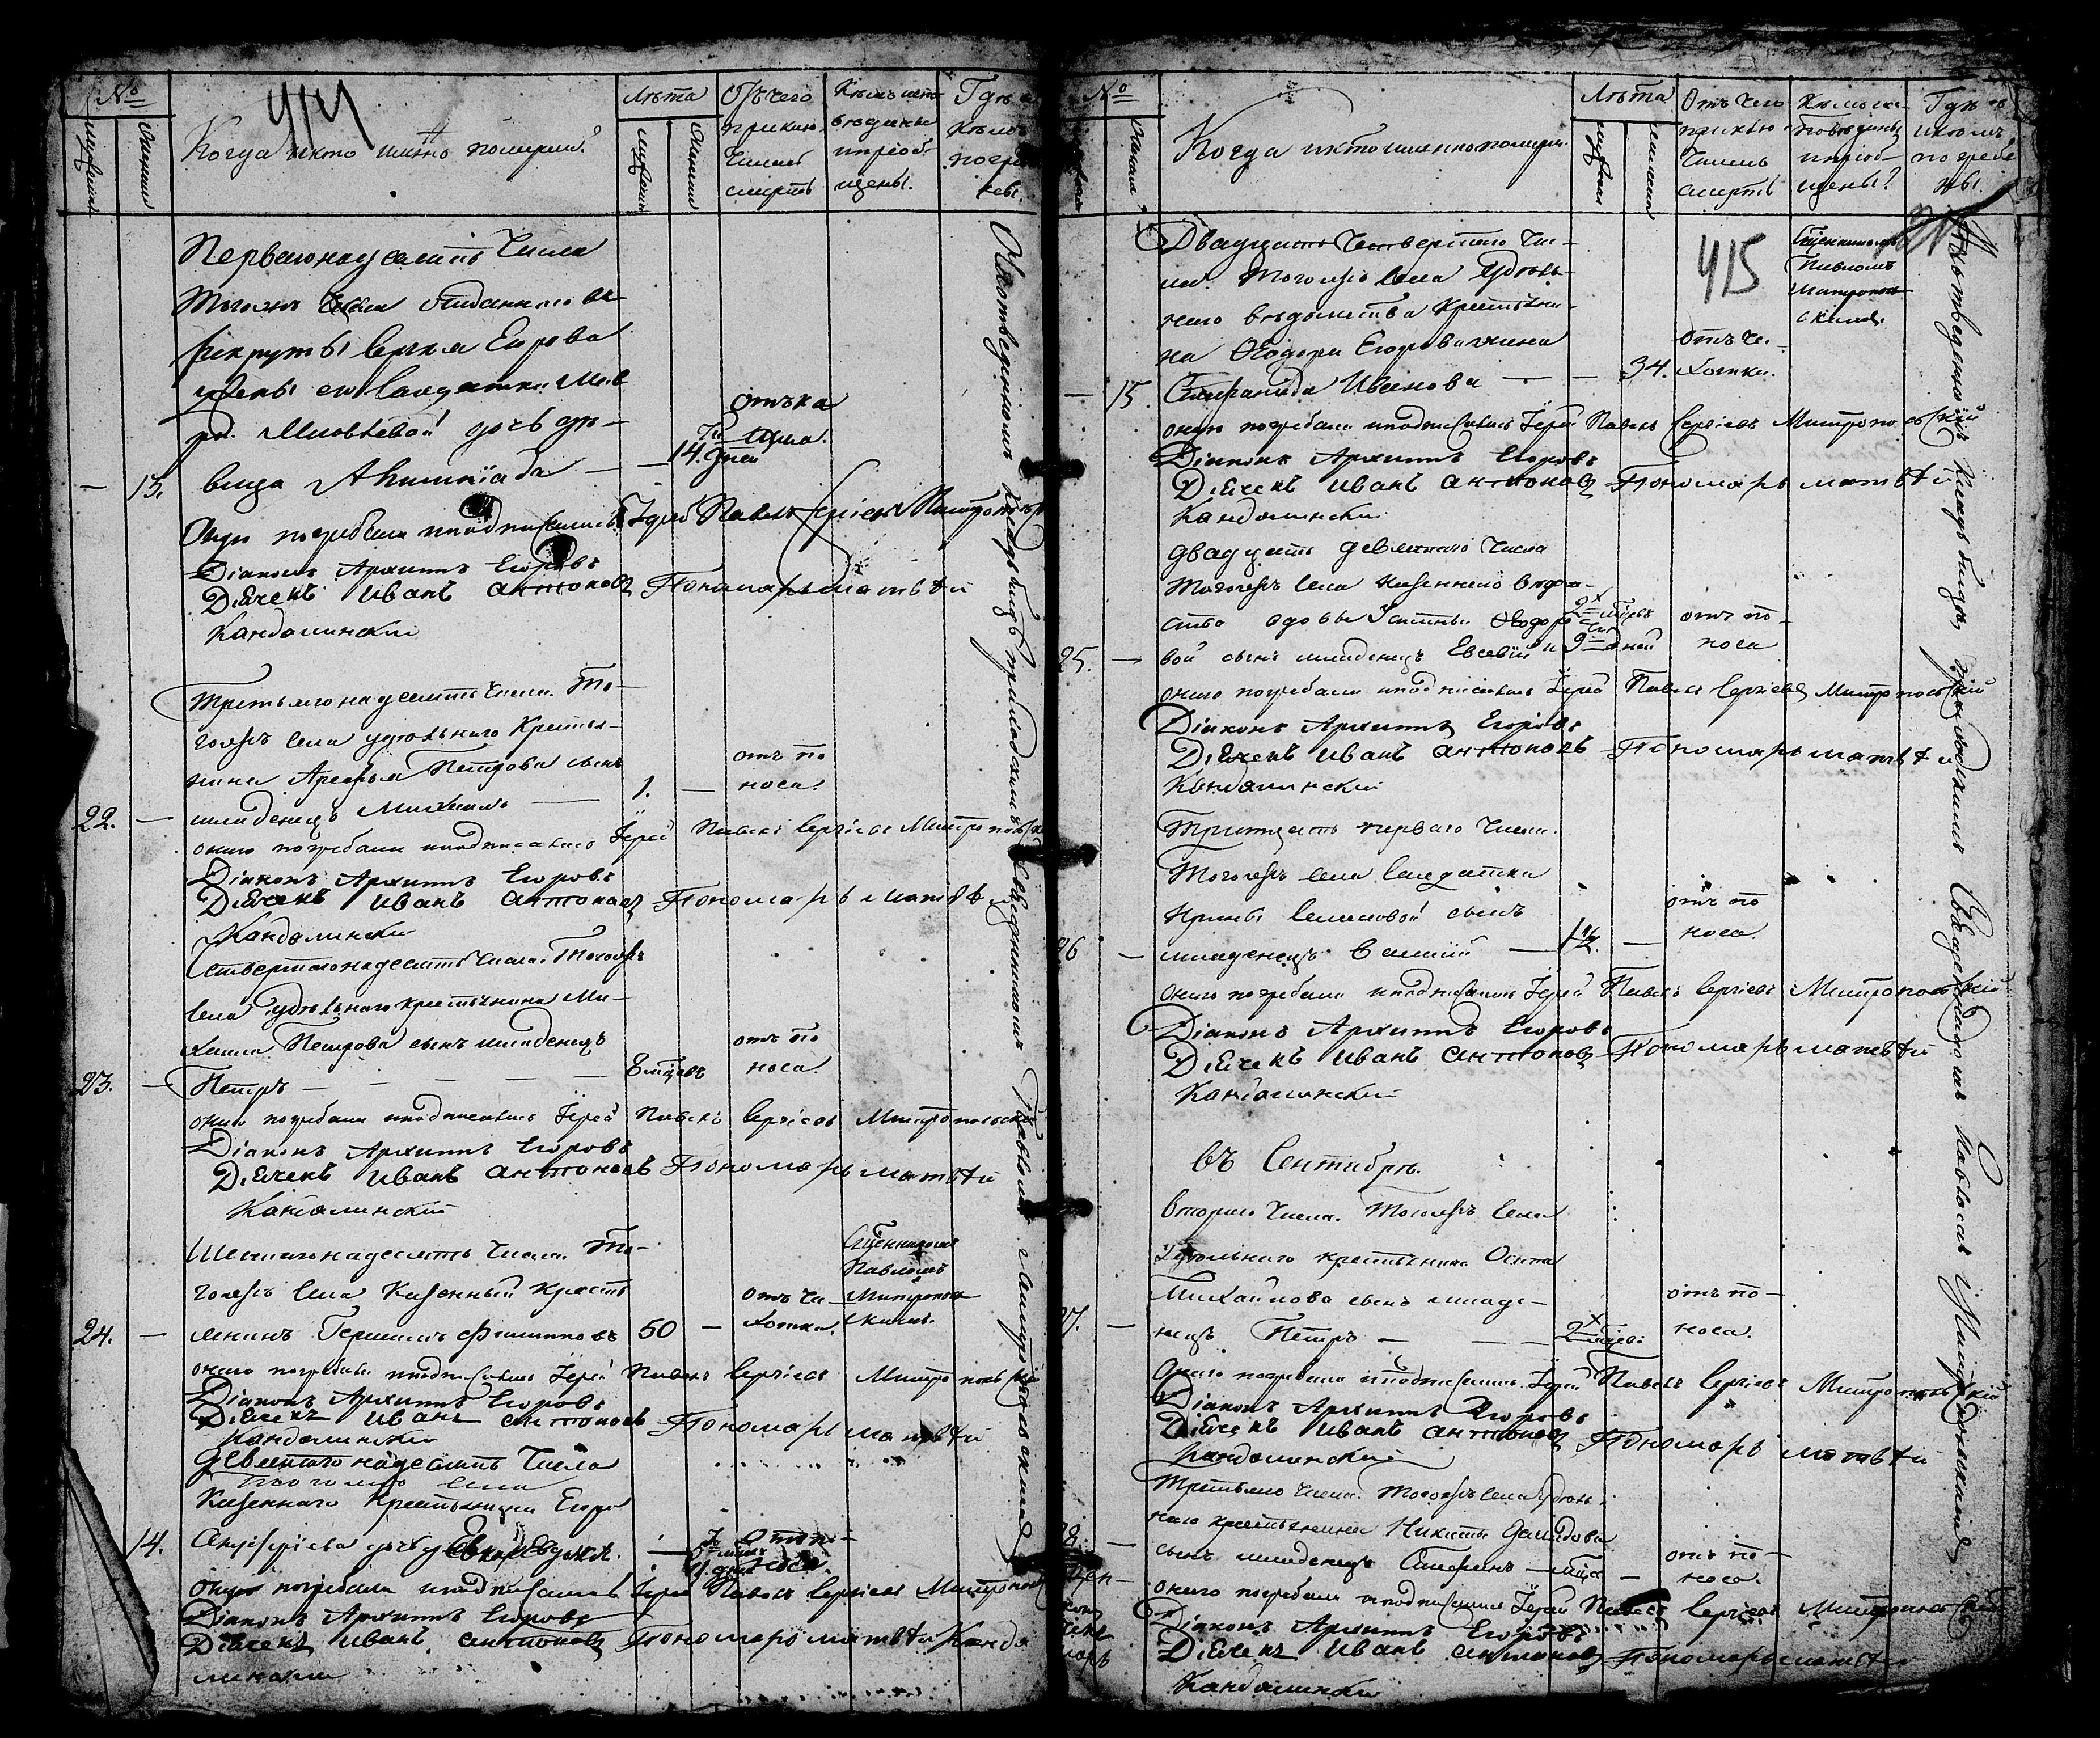 №
мужеска
женска
414
Когда и кто именно померли.
Лѣта
мужеска
женска
Отъ чего
приклю-
чилась
смерть
Кѣмъ испо-
вѣданы
и пріоб-
щены.
Гдѣ и
кѣмъ
погре-
бены.
Первагонадесять Числа
Тогожъ Села отданнаго въ
рекруты Сергѣя Егорова
жены его Салдатки
дочь дѣ-
вица
13.
14. дней
Отъ ка
шля.
Оную погребали и подписались Іерей Павелъ Сергіевъ Митропольскій
Діаконъ Архиппъ Егоровъ
Дьячекъ Иванъ Антоновъ Пономарь матвѣй
Кандалинскій
Третьягонадесять Числа То-
гожъ Села удѣльнаго Крестья-
нина Арефья Петрова сынъ
22. — младенецъ Михаилъ — 1. —
отъ по
носа.
онаго погребали и подписались Іерей Павелъ Сергіевъ Митропольскій
Діаконъ Архиппъ Егоровъ
Дьячекъ Иванъ Антоновъ Пономарь матвѣй
Кандалинскій
Четвертагонадесять Числа Тогожъ
Села Удѣльнаго крестьянина Ми-
хаила Петрова сынъ младенецъ
23. — Петръ — 8 мцовъ
отъ по
носа.
онаго погребали и подписались Іерей Павелъ Сергіевъ Митропольскій
Діаконъ Архиппъ Егоровъ
Дьячекъ Иванъ Антоновъ Пономарь матвѣй
Кандалинскій
Шестагонадесять Числа То-
гожъ Села Казенный Кресть
24. — янинъ Герасимъ Филиповъ 50 —
отъ ча-
хотки.
Сщенникомъ
Павломъ
Митрополь-
скимъ.
онаго погребали и подписались Іерей Павелъ Сергіевъ Митропольскій
Діаконъ Архиппъ Егоровъ
Дьячекъ Иванъ Антоновъ Пономарь матвѣй
Кандалинскій
Девятагонадесять Числа
Тогожъ Села
Казеннаго Крестьянина Егора
14. дочь
Отъ по-
носа.
Оную погребали и подписались Іерей Павелъ Сергіевъ Митропольскій
Діаконъ Архиппъ Егоровъ
Дьячекъ Иванъ Антоновъ Пономарь матвѣй Канда
линскій
На отведенномъ кладбищѣ приходскимъ Священникомъ Павломъ Митропольскимъ
№
женска
Когда и кто именно померли.
Лѣта
мужеска
женска
Отъ чего
приклю-
чилась
смерть
Кѣмъ испо-
вѣданы
и пріоб-
щены?
Гдѣ и
и кѣмъ
погребе
ны.
415
Двадцать Четвертаго Чис-
ла. Тогожъ Села Удѣль-
наго вѣдомства Крестьяни-
на Ѳедора Егорова жена
— 15. Степанида Иванова — — 34.
отъ ча-
хотки.
Сщенникомъ
Павломъ
Митрополь-
скимъ.
оную погребали и подписались Іерей Павелъ Сергіевъ Митропольскій
Діаконъ Архиппъ Егоровъ
Дьячекъ Иванъ Антоновъ Пономарь матвѣй
Кандалинскій
двадцать девятаго Числа
Тогожъ Села казеннаго вѣдом-
ства вдовы Устиньи Ѳедоро
25. — вой сынъ младенецъ Евсевій
2х мцовъ
и 9 дней
отъ по-
носа
онаго погребали и подписались Іерей Павелъ Сергіевъ Митропольскій
Діаконъ Архиппъ Егоровъ
Дьячекъ Иванъ Антоновъ Пономарь матвѣй
Кандалинскій
Тритцать перваго Числа.
Тогожъ Села Салдатки
Ирины Семеновой сынъ
26 — младенецъ Василій — 1½. —
отъ по
носа.
онаго погребали и подписались Іерей Павелъ Сергіевъ Митропольскій
Діаконъ Архиппъ Егоровъ
Дьячекъ Иванъ Антоновъ Пономарь матвѣй
Кандалинскій
въ Сентябрѣ.
Втораго Числа. Тогожъ Села
Удѣльнаго крестьянина Осипа
Михайлова сынъ младе-
27. — нецъ Петръ — — 2х мцовъ
отъ по-
носа.
Онаго погребали и подписались Іерей Павелъ Сергіевъ Митропольскій
Діаконъ Архиппъ Егоровъ
Дьячекъ Иванъ Антоновъ Пономарь матвѣй
Кандалинскій
Третьяго Числа. Тогожъ Села Удѣль-
наго крестьянина Никиты Давыдова
28. — сынъ младенецъ Стефанъ — мца —
отъ по-
носа.
онаго погребали и подписались Іерей Павелъ Сергіевъ Митропольскій
Діаконъ Архиппъ Егоровъ
Дьячекъ Иванъ Антоновъ Пономарь матвѣй
Кандалинскій
На отведенномъ кладбищѣ приходскимъ Священникомъ Павломъ Митропольскимъ